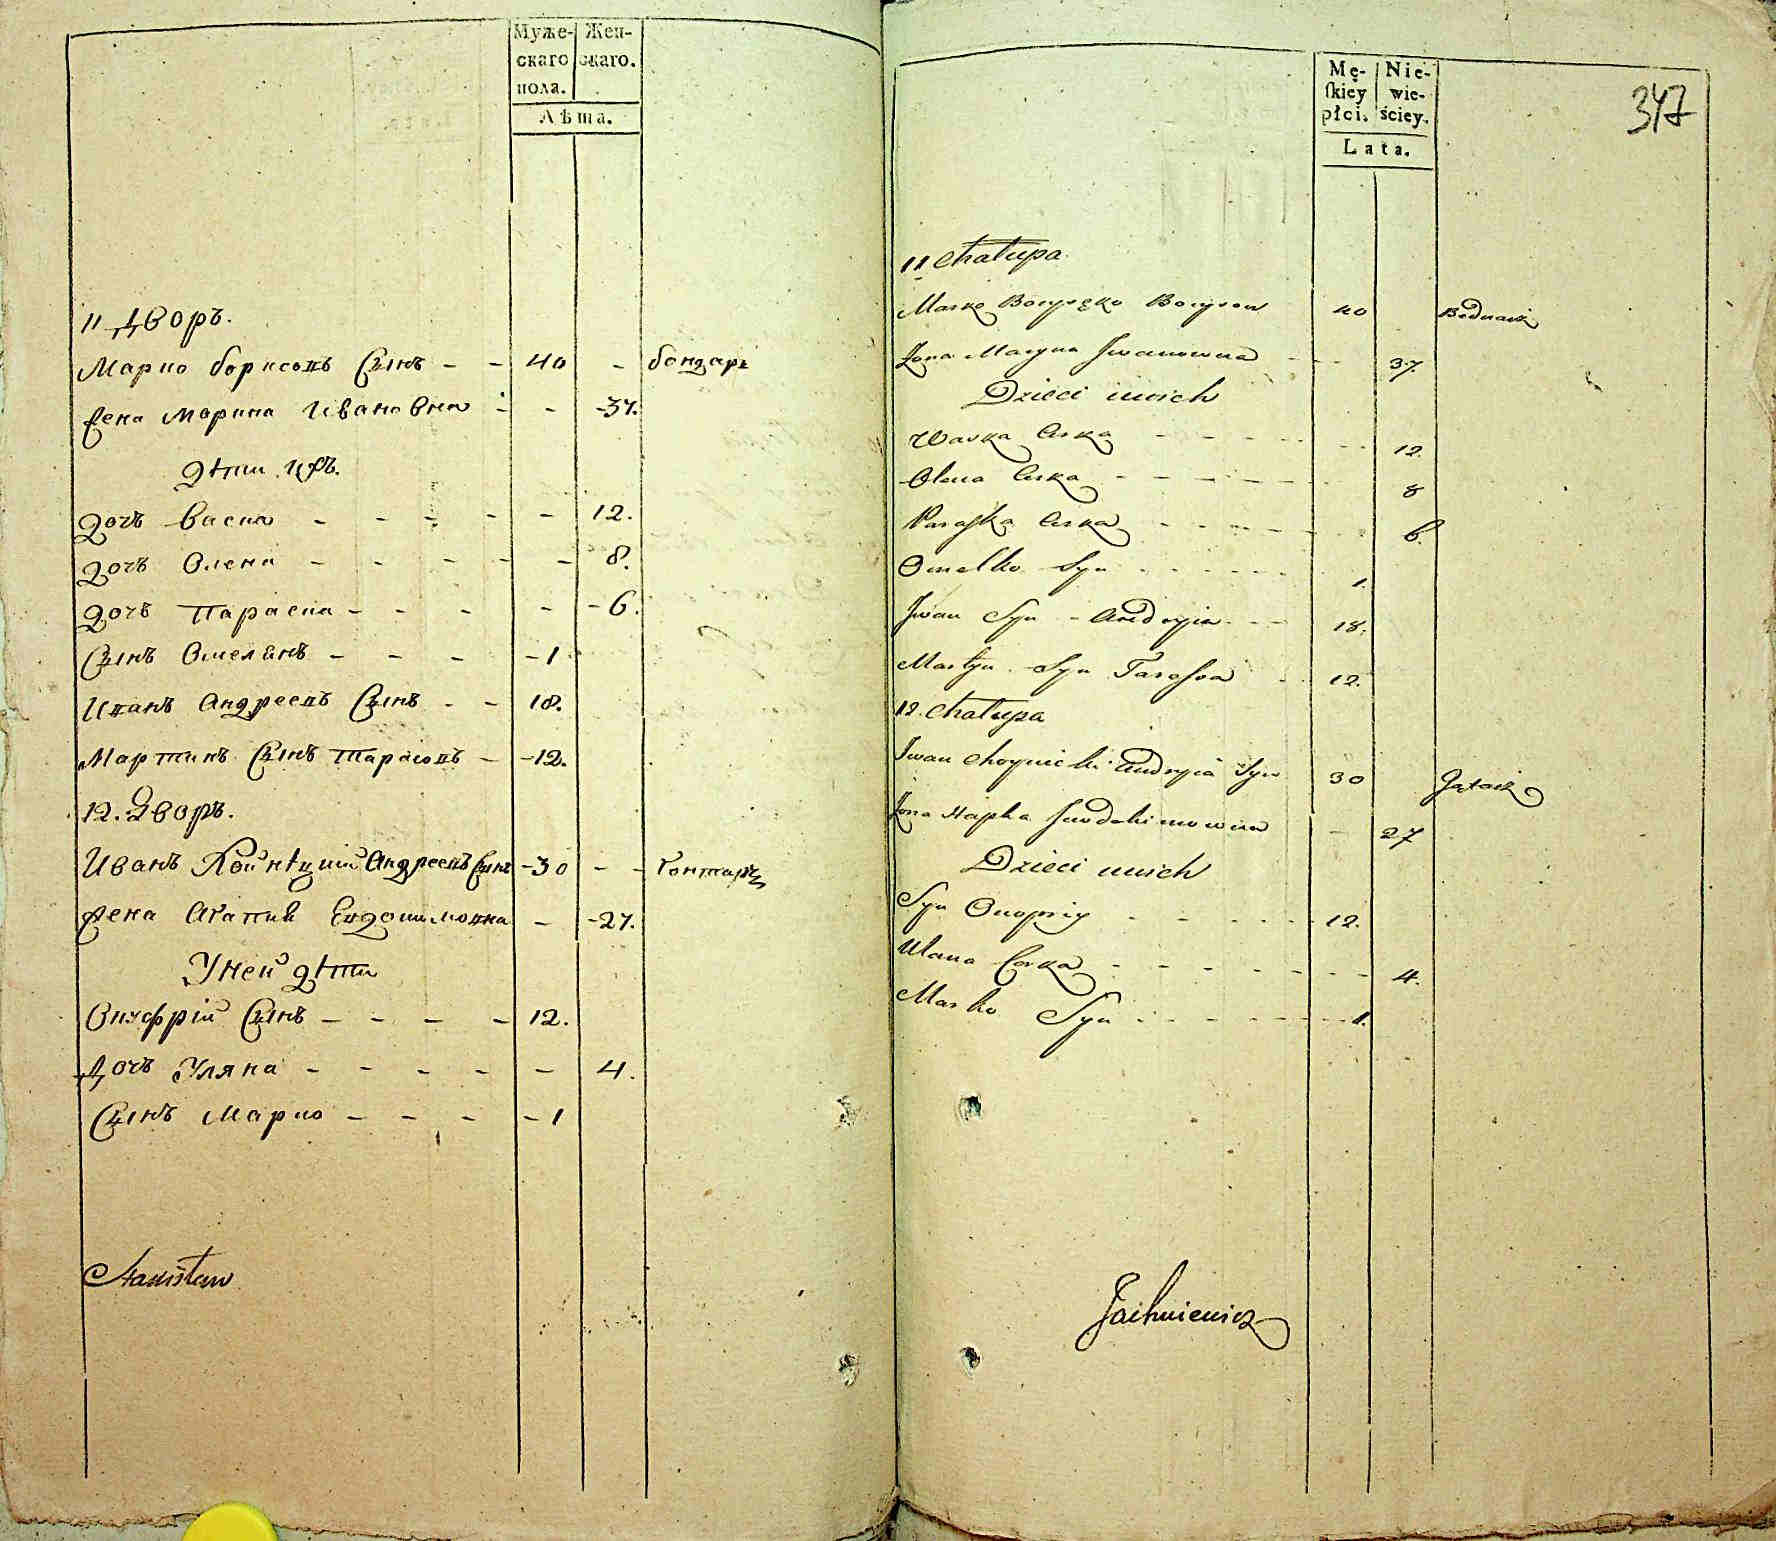 Муже- Жен-
скаго скаго.
пола.
Лѣта.
11 Дворъ.
Марко борисовъ Сынъ - - 40 - бондаръ
Жена Марина Ивановна - - -37.
дѣти ихъ.
дочъ Васка - - - - - 12.
дочъ Олена - - - - - 8.
дочъ Параска - - - - -6.
Сынъ Омелянъ - - - -1
Иванъ Андреевъ Сынъ - - 18.
Мартинъ Сынъ Тарасовъ - -12.
12. Дворъ.
Иванъ Андреевъ Сынъ -30 - - Гонтаръ
Жена Агапия Евдокимовна - -27.
Уней дѣти
Онуфрій Сынъ - - - - 12.
Дочъ Уляна - - - - - 4.
Сынъ Марко - - - -1
Stanisław
Mę- Nie-
skiey wie-
płci. ściey.
Lata.
347
11 Chałupa
Marko Borysęko Borysow 40 Bednarz
Żona Maryna Iwanowna - - - 37.
Dzieci unich
Waska Curka - - - - - - 12.
Olena Curka - - - - - - 8
Paraska Curka - - - - - 6.
Omelko Syn - - - - - - 1.
Jwan Syn - Andryia - - - 18.
Martyn Syn Tarasoa - 12.
12. Chałupa
Iwan Choynicki Andryia Syn 30
Żona Hapka Juwdokimowna - 27
Dzieci unich
Syn Onopriy - - - - - 12.
Ulana Corka - - - - - - - 4.
Marko Syn - - - - - - 1.
Jachniewicz